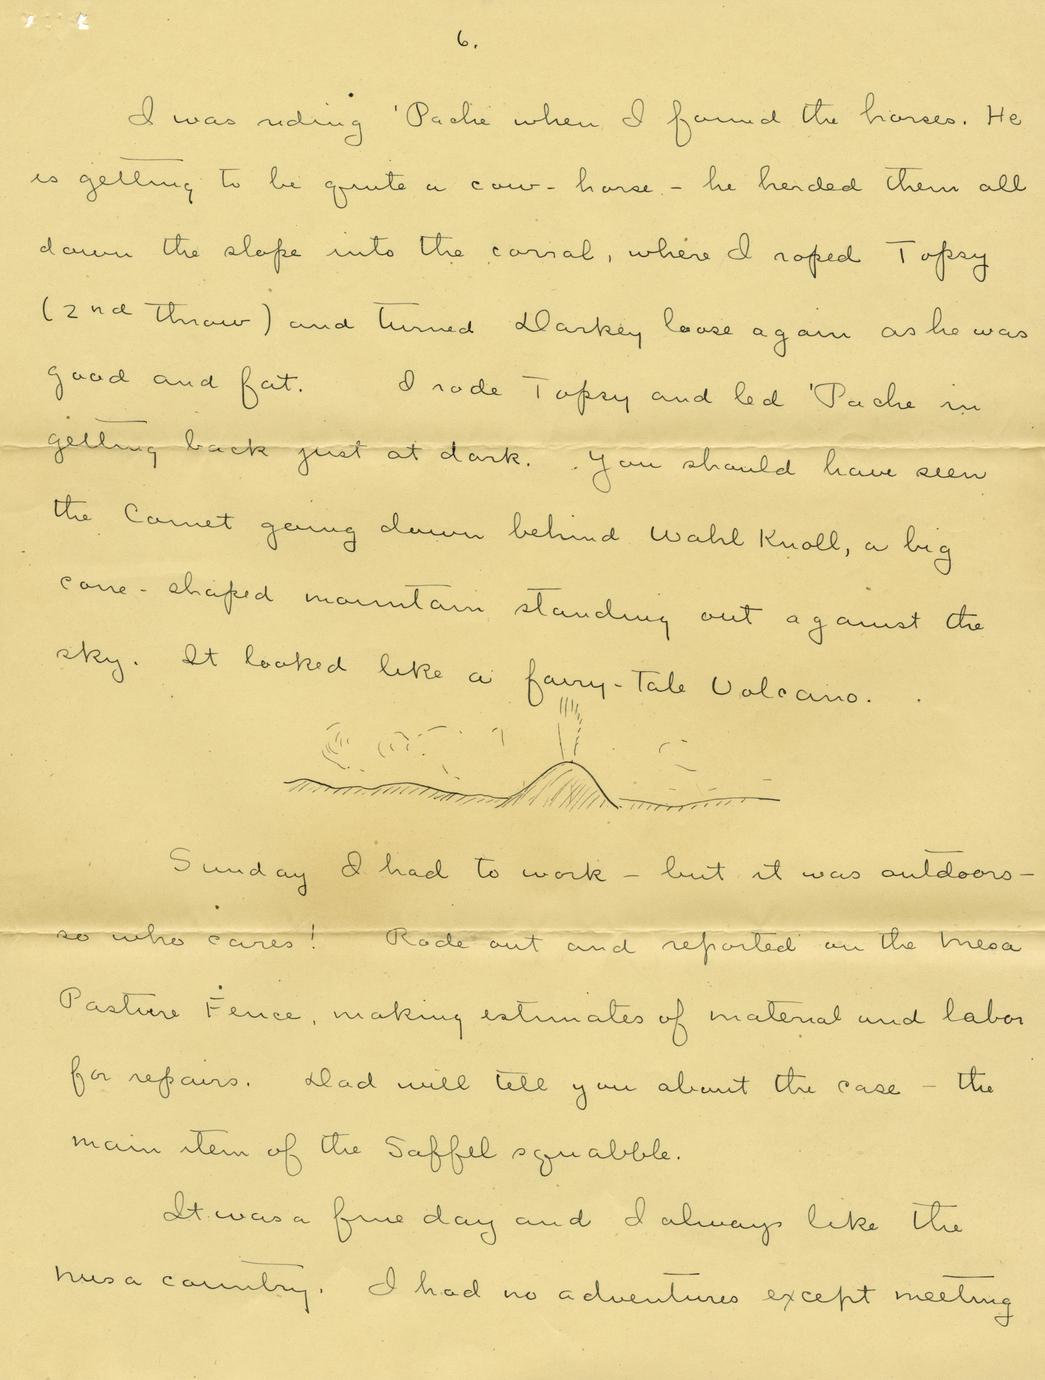 6.
I was riding 'Pache when I found the horses. He
is getting to be quite a cow-horse - he herded them all
down the slope into the corral, where I roped Topsy
(2nd throw) and turned Darkey loose again as he was
good and fat. I rode Topsy and led 'Pache in
getting back just at dark. You should have seen
the Comet going down behind Wahl Knoll, a big
cone-shaped mountain standing out against the
sky. It looked like a fairy-tale Volcano.
Sunday I had to work - but it was outdoors -
so who cares! Rode out and reported on the Mesa
Pasture Fence, making estimates of material and labor
for repairs. Dad will tell you about the case - the
main item of the Saffel squabble.
It was a fine day and I always like the
mesa country. I had no adventures except meeting